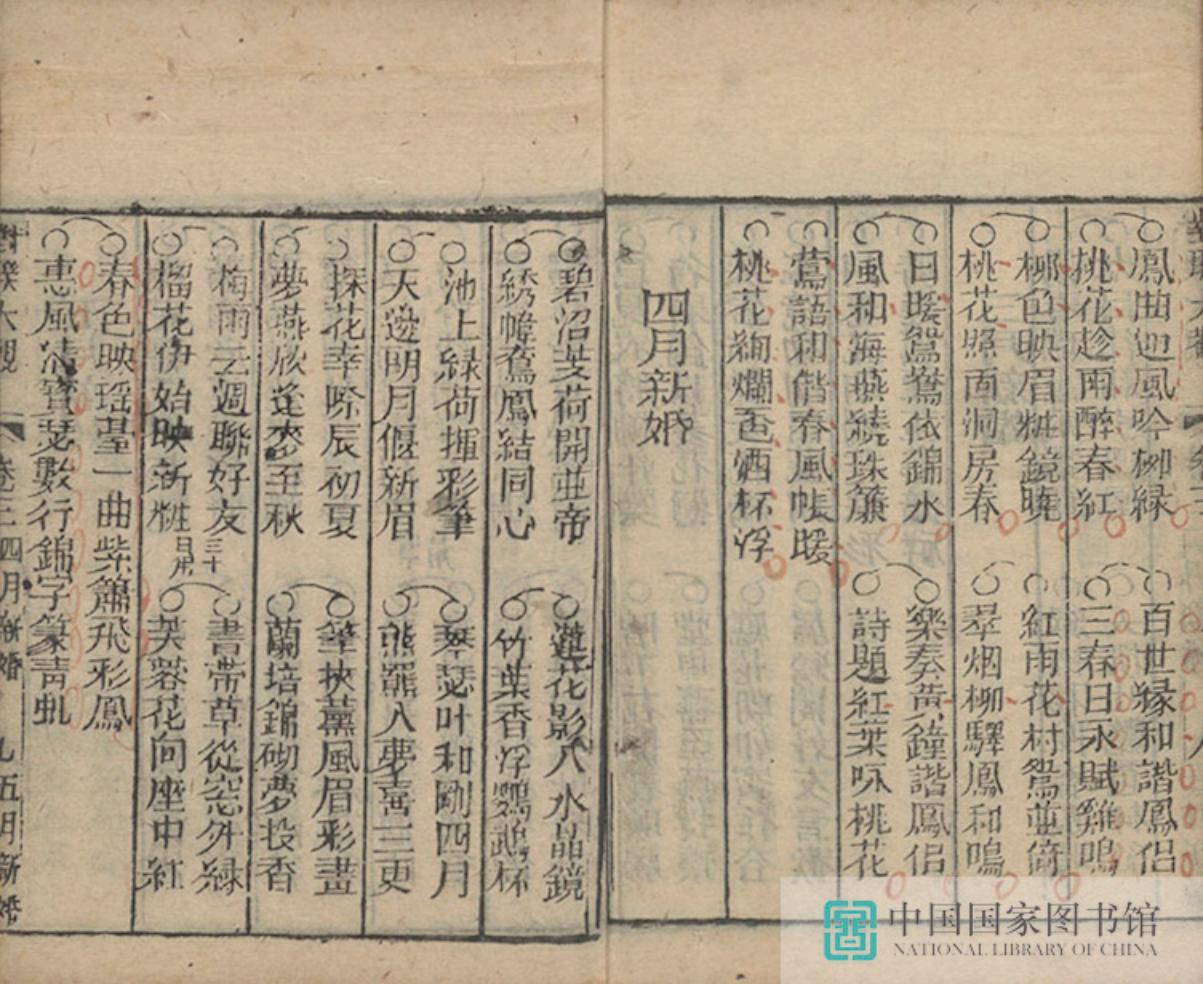 鳳曲迎風吟柳緑
百世縁和諧鳳侶
桃花趁雨醉春紅
三春日永賦雞鳴
柳色映眉粧鏡曉
紅雨花村鴛並倚
桃花照面洞房春
翠烟柳驛鳳和鳴
日暖鴛鴦依錦水
樂奏黄鐘諧鳳侶
風和海燕繞珠簾
詩題紅葉咏桃花
鶯語和偕春風帳暖
桃花絢爛色酒杯浮
四月新婚
碧沼芰荷開並蒂
蓮花影入水晶鏡
綉幃鸞鳳結同心
竹葉香浮鸚鵡杯
池上緑荷揮彩筆
琴瑟叶和剛四月
天邊明月偃新眉
熊羆入夢喜三更
探花幸際辰初夏
筆挾薰風眉彩畫
夢燕欣逢麥至秋
蘭培錦砌夢投香
梅雨云週聯好友
三十日用
書帶草從窓外緑
榴花伊始映新粧
芙蓉花向座中紅
春色映瑶臺一曲紫簫飛彩鳳
惠風清寶瑟數行錦字篆青虬
大觀 卷三 四月新婚 九 五月新婚
中国国家图书馆
NATIONAL LIBRARY OF CHINA